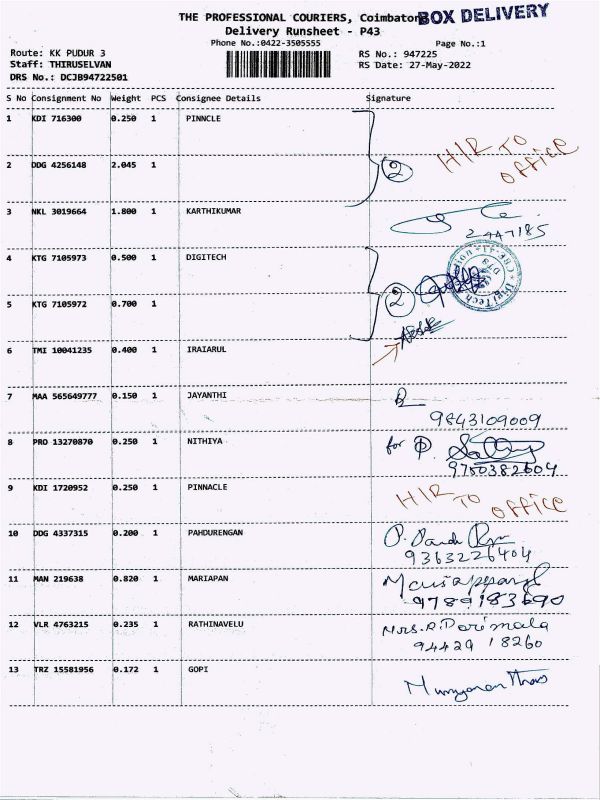 THE PROFESSIONAL COURIERS, Coimbatore
BOX DELIVERY
Delivery Runsheet - P43
Phone No.:0422-3505555
Page No.:1
Route: KK PUDUR 3
RS No.: 947225
Staff: THIRUSELVAN
RS Date: 27-May-2022
DRS No.: DCJB94722501
S No Consignment No Weight PCS Consignee Details Signature
1 KDI 716300 0.250 1 PINNCLE
H/R TO OFFICE
2 DDG 4256148 2.045 1
2
3 NKL 3019664 1.800 1 KARTHIKUMAR
2447185
4 KTG 7105973 0.500 1 DIGITECH
2
5 KTG 7105972 0.700 1
6 TMI 10041235 0.400 1 IRAIARUL
7 MAA 565649777 0.150 1 JAYANTHI
9843109009
8 PRO 13270870 0.250 1 NITHIYA
for
9750382604
9 KDI 1720952 0.250 1 PINNACLE
H/R TO OFFICE
10 DDG 4337315 0.200 1 PAHDURENGAN
9363226404
11 MAN 219638 0.820 1 MARIAPAN
9789183690
12 VLR 4763215 0.235 1 RATHINAVELU
Mrs.R.Parimala
94429 18260
13 TRZ 15581956 0.172 1 GOPI